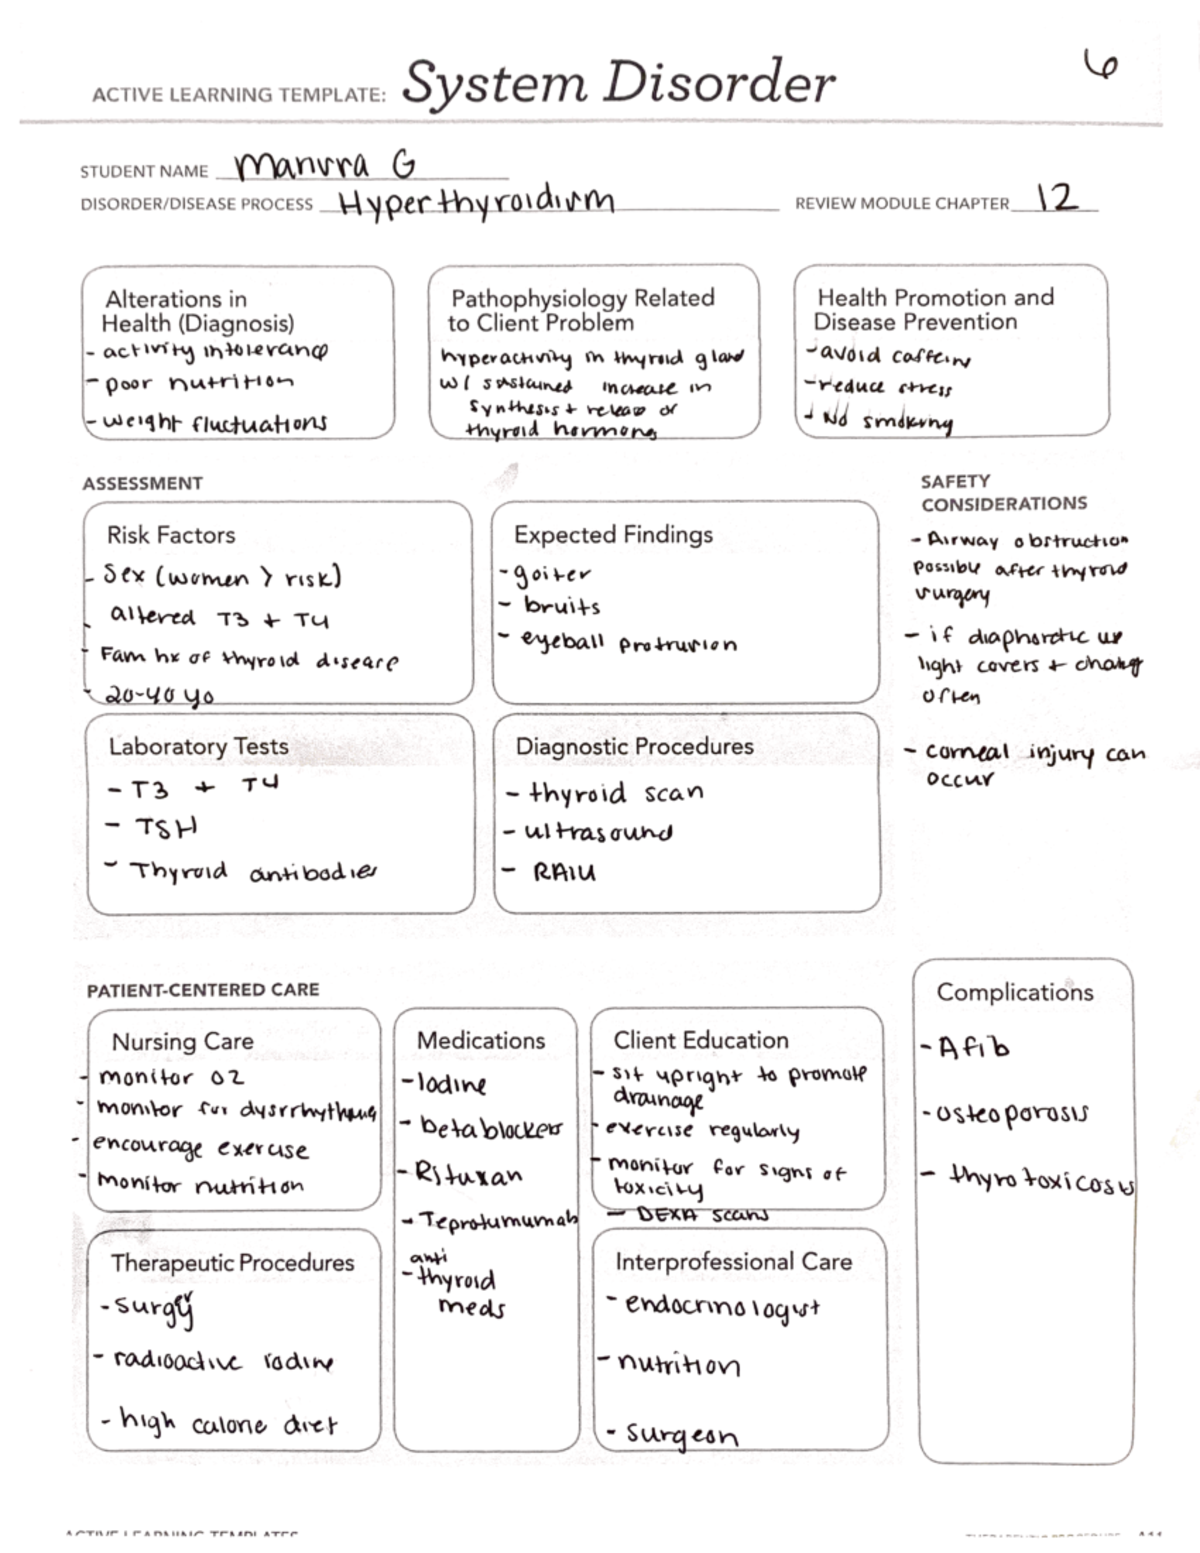 ACTIVE LEARNING TEMPLATE: System Disorder
6
STUDENT NAME Manvra G
DISORDER/DISEASE PROCESS Hyperthyroidism REVIEW MODULE CHAPTER 12
Alterations in
Health (Diagnosis)
- activity intolerance
- poor nutrition
- weight fluctuations
Pathophysiology Related
to Client Problem
hyperactivity in thyroid gland
w/ sustained increase in
synthesis + release of
thyroid hormone
Health Promotion and
Disease Prevention
- avoid caffeine
- reduce stress
- No smoking
ASSESSMENT
Risk Factors
- Sex (women > risk)
- altered T3 + T4
- Fam hx of thyroid disease
- 20-40 yo
Expected Findings
- goiter
- bruits
- eyeball protrusion
SAFETY
CONSIDERATIONS
- Airway obstruction
possible after thyroid
surgery
- if diaphoretic use
light covers + change
often
- corneal injury can
occur
Laboratory Tests
- T3 + T4
- TSH
- Thyroid antibodies
Diagnostic Procedures
- thyroid scan
- ultrasound
- RAIU
PATIENT-CENTERED CARE
Nursing Care
- monitor O2
- monitor for dysrrhythmia
- encourage exercise
- monitor nutrition
Medications
- Iodine
- beta blockers
- Rituxan
- Teprotumumab
anti
- thyroid
meds
Client Education
- sit upright to promote
drainage
- exercise regularly
- monitor for signs of
toxicity
- DEXA scans
Complications
- Afib
- osteoporosis
- thyrotoxicosis
Therapeutic Procedures
- surgery
- radioactive iodine
- high calorie diet
Interprofessional Care
- endocrinologist
- nutrition
- surgeon
ACTIVE LEARNING TEMPLATES